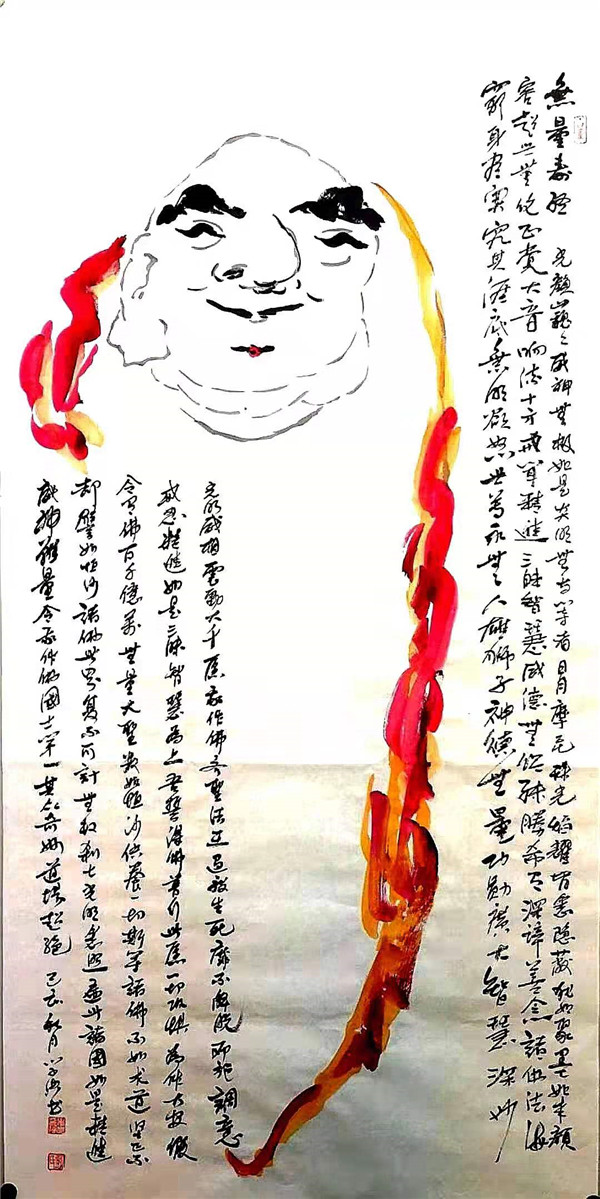 無量壽經 光顏巍々威神無極如是炎明無與等者日月摩尼珠光焰耀皆悉隱蔽猶如聚墨如來顏
容超世無倫正覺大音响流十方戒聞精進三昧智慧威德無侶殊勝希有深諦善念諸佛法海
窮深盡奧究其涯底無明欲怒世尊永無人雄獅子神德無量功勛廣大智慧深妙
光明威相震動大千願我作佛齊聖法王過度生死靡不解脫布施調意
戒忍精進如是三昧智慧為上吾誓得佛普行此願一切恐懼為作大安假
令有佛百千億萬無量大聖數如恒沙供養一切斯等諸佛不如求道堅正不
却譬如恒沙諸佛世界復不可計無數剎土光明悉照遍此諸國如是精進
威神難量令我作佛國土第一其眾奇妙道場超絕 己亥秋月 書